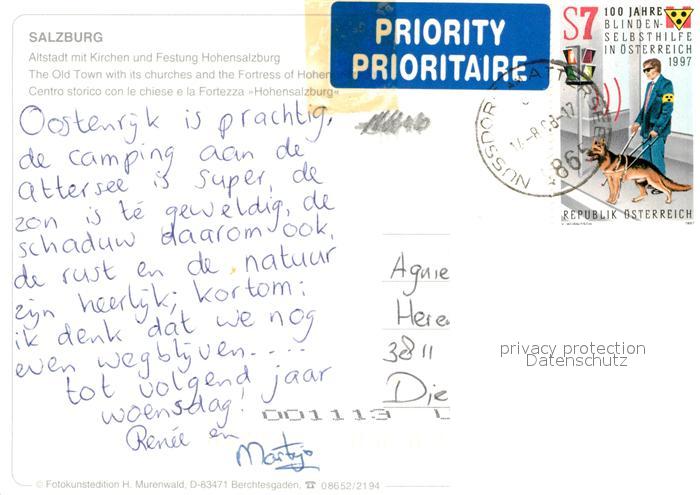 SALZBURG
Altstadt mit Kirchen und Festung Hohensalzburg
The Old Town with its churches and the Fortress of Hohen
Centro storico con le chiese e la Fortezza »Hohensalzburg«
PRIORITY
PRIORITAIRE
S7 100 JAHRE
BLINDEN-
SELBSTHILFE
IN ÖSTERREICH
1997
REPUBLIK ÖSTERREICH
1997
NUSSDORF AM ATTERSEE
4865
Oostenrijk is prachtig,
de camping aan de
Attersee is super, de
zon is té geweldig, de
schaduw daarom ook,
de rust en de natuur
zijn heerlijk; kortom:
ik denk dat we nog
even wegblijven....
tot volgend jaar
woensdag!
Renée en
Martijn
Agnie
Here
3811
Die
privacy protection
Datenschutz
001113
© Fotokunstedition H. Murenwald, D-83471 Berchtesgaden, ☎ 08652/2194